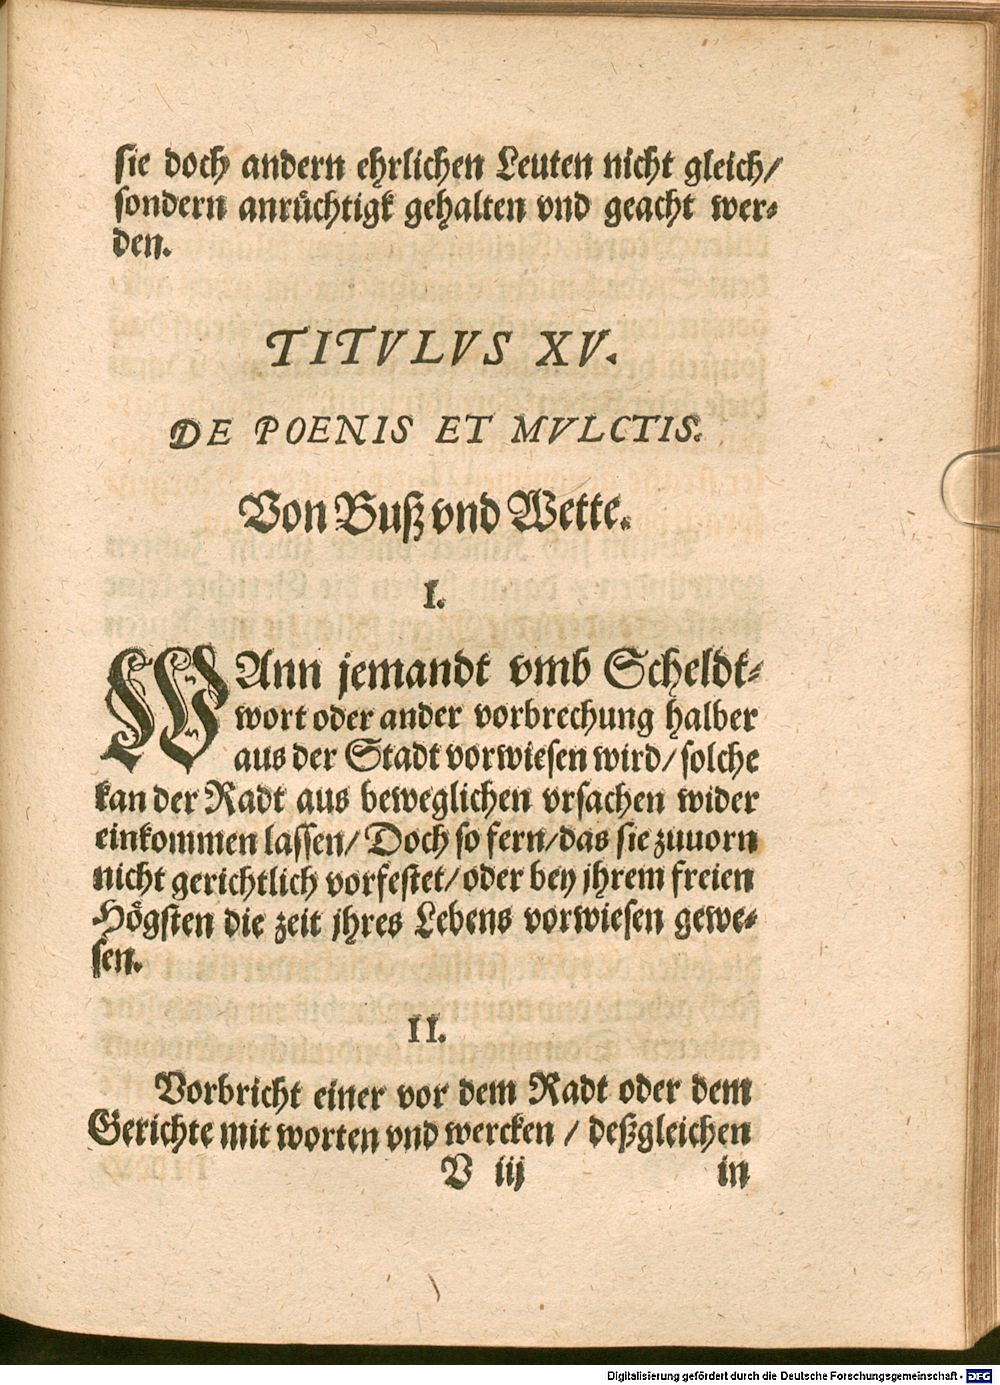 sie doch andern ehrlichen Leuten nicht gleich/
sondern anrüchtigk gehalten vnd geacht wer-
den.
TITVLVS XV.
DE POENIS ET MVLCTIS.
Von Buß vnd Wette.
I.
WAnn jemandt vmb Scheldt-
wort oder ander vorbrechung halber
aus der Stadt vorwiesen wird/ solche
kan der Radt aus beweglichen vrsachen wider
einkommen lassen/ Doch so fern/ das sie zuuorn
nicht gerichtlich vorfestet/ oder bey jhrem freien
Högsten die zeit jhres Lebens vorwiesen gewe-
sen.
II.
Vorbricht einer vor dem Radt oder dem
Gerichte mit worten vnd wercken / deßgleichen
V iij in
Digitalisierung gefördert durch die Deutsche Forschungsgemeinschaft - DFG